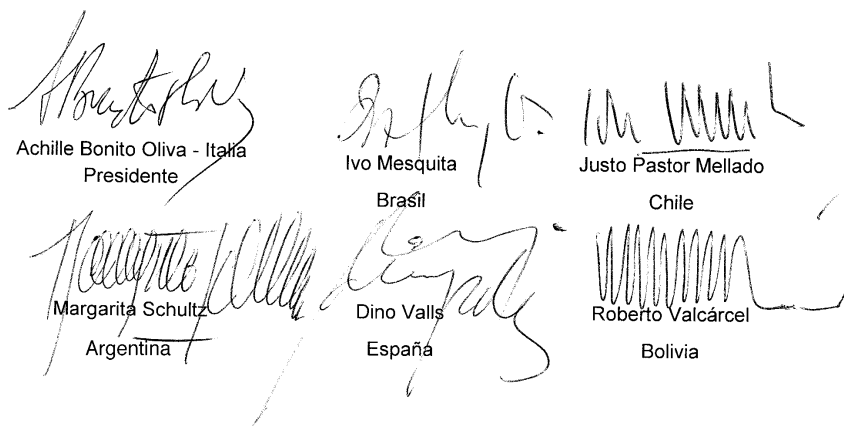 Achille Bonito Oliva - Italia
Presidente
Ivo Mesquita
Brasil
Justo Pastor Mellado
Chile
Margarita Schultz
Argentina
Dino Valls
España
Roberto Valcárcel
Bolivia